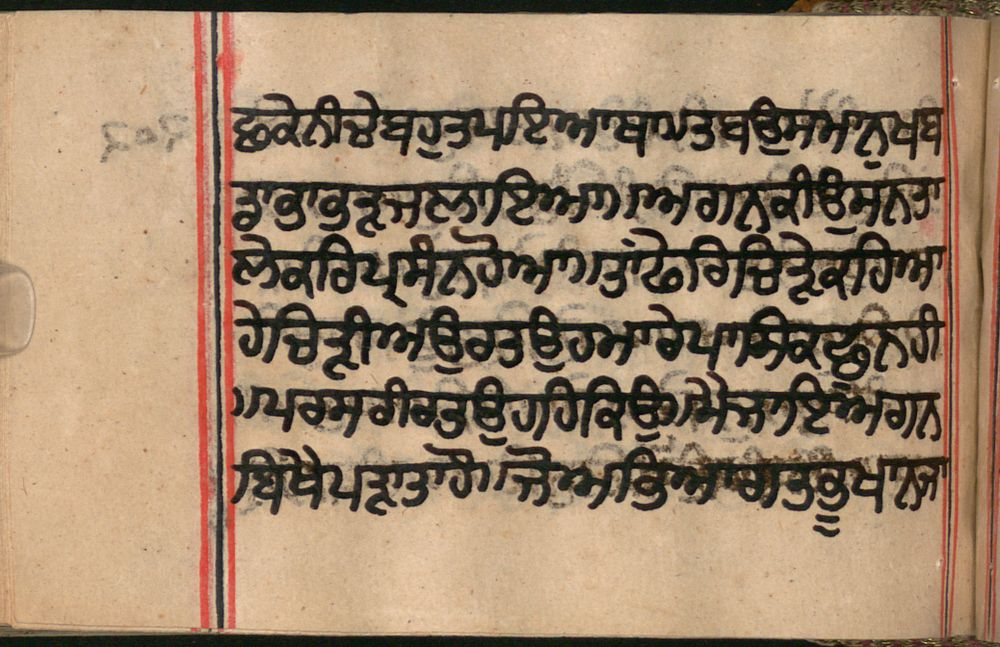 ਛਕੇਨੀਚੇਬਹੁਤਪਇਆਥਾ।ਤਬਉਸਮਾਨੁਖਬ
ਡਾਭਾਭੜਜਲਾਇਆ।।ਅਗਨਕੀਉਸਨਤਾ
ਲੇਕਰਿਪ੍ਰਸੰਨਹੋਆ।।ਤਾਂਫੇਰਿਚਿਤ੍ਰੇਕਹਿਆ
ਹੇਚਿਤ੍ਰੀਅਉਰਤਉਹਮਾਰੇਪਾਸਿਕਛੁਨਹੀ
।।ਪਰਸਰੀਰਤਉਹਹਿਕਿਉ।ਮੈਜਾਇਅਗਨ
ਬਿਖੇਪੜਾਤਾਹੌ।।ਜੋਅਭਿਆਗਤਭੂਖਾਨਜਾ